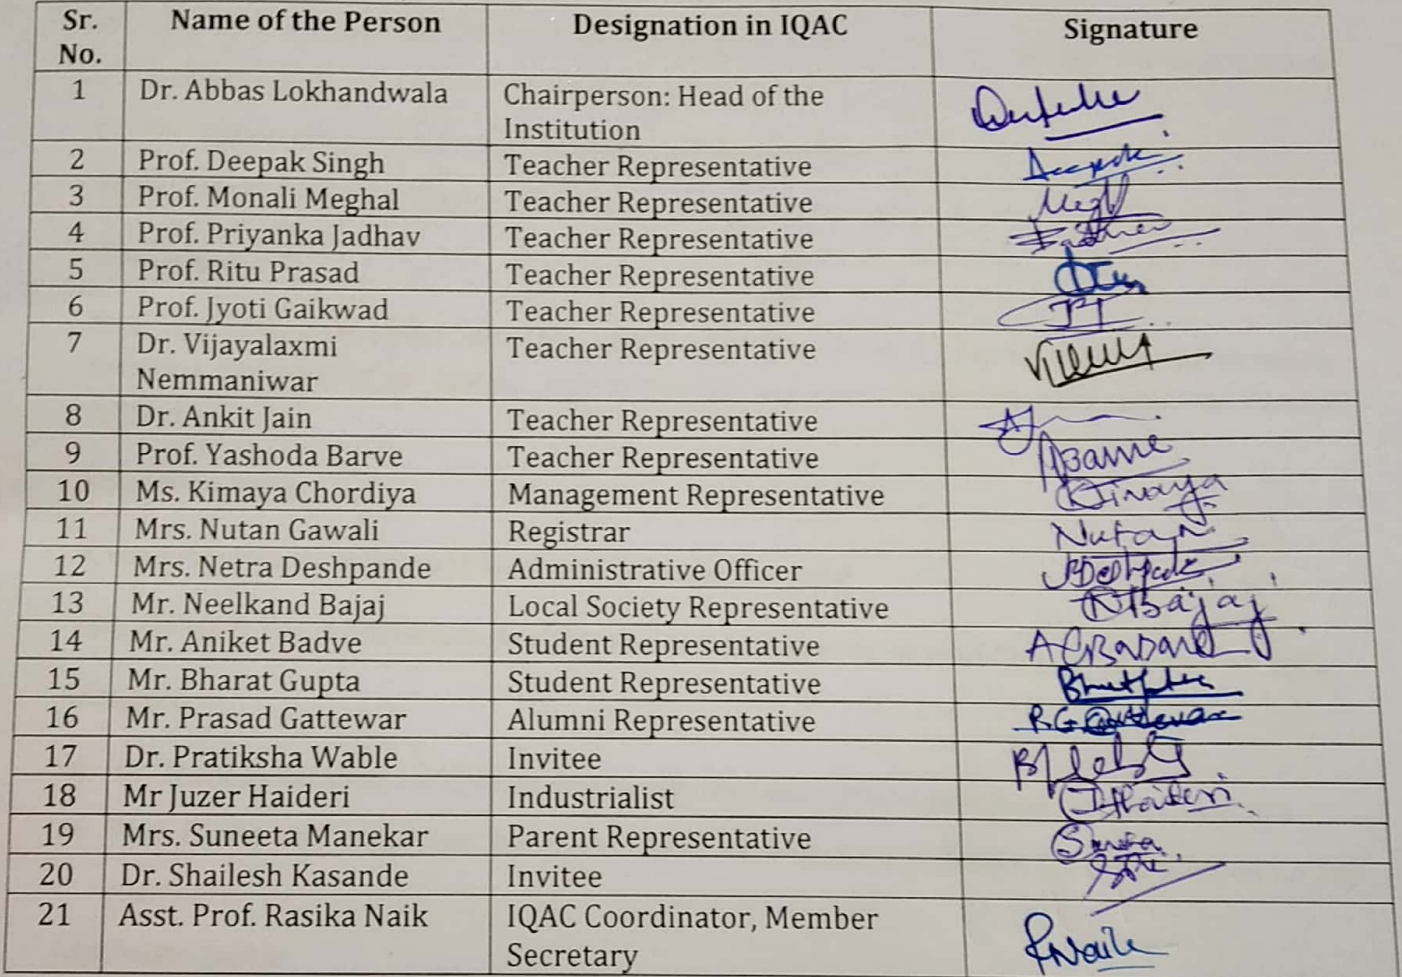 Sr. No. Name of the Person Designation in IQAC Signature
1 Dr. Abbas Lokhandwala Chairperson: Head of the
Institution
2 Prof. Deepak Singh Teacher Representative Deepak
3 Prof. Monali Meghal Teacher Representative
4 Prof. Priyanka Jadhav Teacher Representative
5 Prof. Ritu Prasad Teacher Representative
6 Prof. Jyoti Gaikwad Teacher Representative
7 Dr. Vijayalaxmi Teacher Representative
Nemmaniwar
8 Dr. Ankit Jain Teacher Representative
9 Prof. Yashoda Barve Teacher Representative
10 Ms. Kimaya Chordiya Management Representative Kimaya
11 Mrs. Nutan Gawali Registrar Nutan
12 Mrs. Netra Deshpande Administrative Officer
13 Mr. Neelkand Bajaj Local Society Representative NBajaj
14 Mr. Aniket Badve Student Representative
15 Mr. Bharat Gupta Student Representative
16 Mr. Prasad Gattewar Alumni Representative P.G.Gattewar
17 Dr. Pratiksha Wable Invitee
18 Mr Juzer Haideri Industrialist JHaideri
19 Mrs. Suneeta Manekar Parent Representative
20 Dr. Shailesh Kasande Invitee
21 Asst. Prof. Rasika Naik IQAC Coordinator, Member RNaik
Secretary